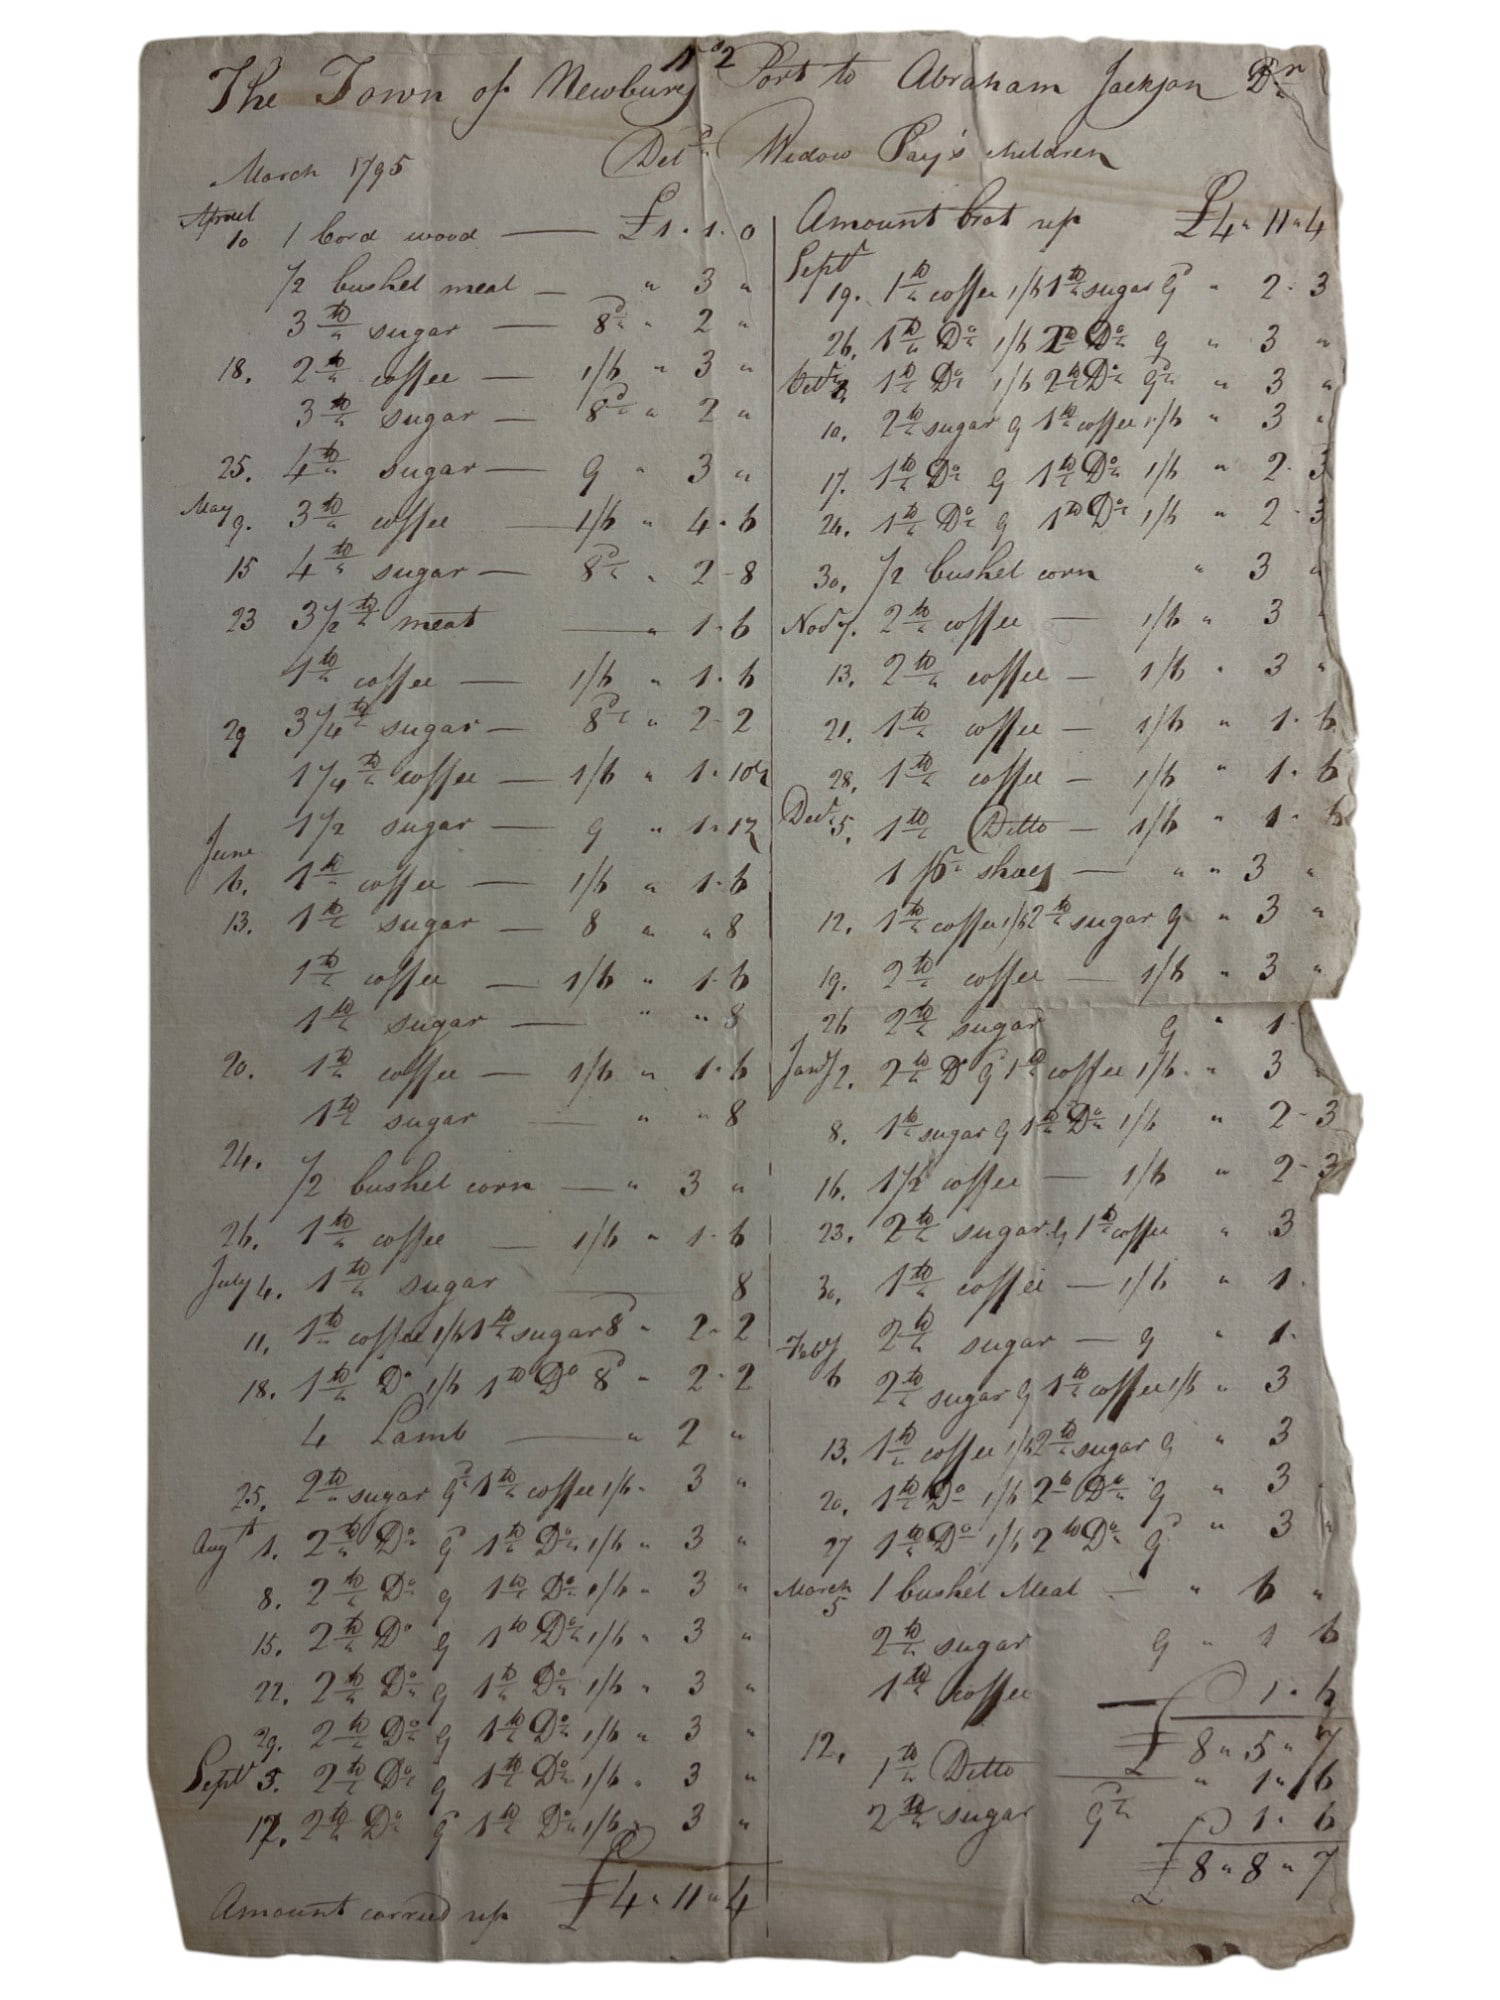 No 2
The Town of Newbury Port to Abraham Jackson Dr
Deld Widow Pay's children
March 1795
Aprail
10 1 Cord wood — £1 . 1 . 0
1/2 bushel meal — " 3 "
3 lb sugar — 8d " 2 "
18. 2 lb coffee — 1/6 " 3 "
3 lb sugar — 8d " 2 "
25. 4 lb sugar — 9 " 3 "
May 9. 3 lb coffee — 1/6 " 4 . 6
15 4 lb sugar — 8d " 2 - 8
23 3 1/2 lb meat — " 1 . 6
1 lb coffee — 1/6 " 1 . 6
29 3 1/4 lb sugar — 8d " 2 - 2
1 1/4 lb coffee — 1/6 " 1 . 10 1/2
1 1/2 sugar — 9 " 1 . 1 1/2
June
6. 1 lb coffee — 1/6 " 1 . 6
13. 1 lb sugar — 8 " " 8
1 lb coffee — 1/6 " 1 . 6
1 lb sugar — " " 8
20. 1 lb coffee — 1/6 " 1 . 6
1 lb sugar — " " 8
24. 1/2 bushel corn — " 3 "
26. 1 lb coffee — 1/6 " 1 . 6
July 4. 1 lb sugar — 8
11. 1 lb coffee 1/6 1 lb sugar 8d " 2 . 2
18. 1 lb Do 1/6 1 lb Do 8d " 2 . 2
4 Lamb — " 2 "
25. 2 lb sugar 9d 1 lb coffee 1/6 " 3 "
Augt 1. 2 lb Do 9d 1 lb Do 1/6 " 3 "
8. 2 lb Do 9 1 lb Do 1/6 " 3 "
15. 2 lb Do 9 1 lb Do 1/6 " 3 "
22. 2 lb Do 9 1 lb Do 1/6 " 3 "
29. 2 lb Do 9 1 lb Do 1/6 " 3 "
Septr 5. 2 lb Do 9 1 lb Do 1/6 " 3 "
12. 2 lb Do 9 1 lb Do 1/6 " 3 "
Amount carried up £4 " 11 " 4
Amount brot up £4 " 11 " 4
Septr
19. 1 lb coffee 1/6 1 lb sugar 9d " 2 . 3
26. 1 lb Do 1/6 2 lb Do 9 " 3 "
Octr 3 1 lb Do 1/6 2 lb Do 9d " 3 "
10. 2 lb sugar 9 1 lb coffee 1/6 " 3 "
17. 1 lb Do 9 1 lb Do 1/6 " 2 . 3
24. 1 lb Do 9 1 lb Do 1/6 " 2 - 3
30. 1/2 bushel corn " 3 "
Novr 7. 2 lb coffee — 1/6 " 3 "
13. 2 lb coffee — 1/6 " 3 "
21. 1 lb coffee — 1/6 " 1 . 6
28. 1 lb coffee — 1/6 " 1 . 6
Decr 5. 1 lb Ditto — 1/6 " 1 . 6
1 pr shoes — " " 3 "
12. 1 lb coffee 1/6 2 lb sugar 9 " 3 "
19. 2 lb coffee — 1/6 " 3 "
26 2 lb sugar 9 " 1 .
Jany 2. 2 lb Do 9 1 lb coffee 1/6 . " 3
8. 1 lb sugar 9 1 lb Do 1/6 " 2 - 3
16. 1 1/2 coffee — 1/6 " 2 - 3
23. 2 lb sugar 9 1 lb coffee " 3
30. 1 lb coffee — 1/6 " 1 .
Feby 2 lb sugar — 9 " 1 .
6 2 lb sugar 9 1 lb coffee 1/6 " 3
13. 1 lb coffee 1/6 2 lb sugar 9 " 3
20. 1 lb Do 1/6 2 lb Do 9 " 3
27 1 lb Do 1/6 2 lb Do 9d " 3 "
March
5 1 bushel Meal — " 6 "
2 lb sugar 9 " 1 6
1 lb coffee — 1 . 6
£ 8 " 5 " 7
12. 1 lb Ditto — " 1 " 6
2 lb sugar 9d 1 . 6
£ 8 " 8 " 7